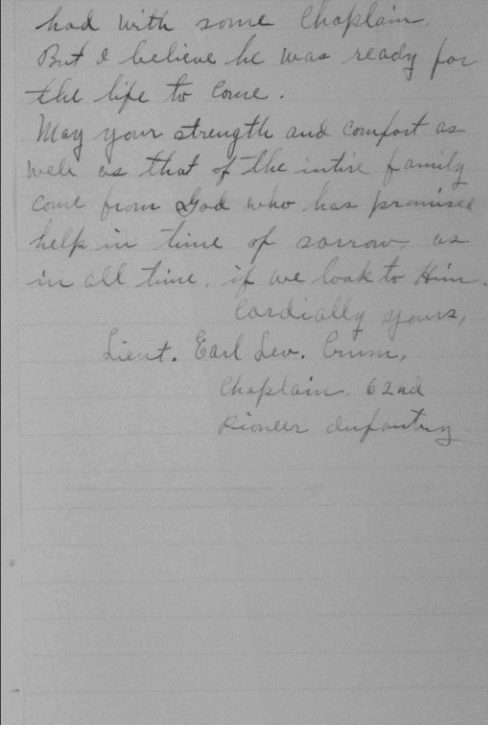 had with some Chaplain.
But I believe he was ready for
the life to come.
May your strength and comfort as
well as that of the intire family
come from God who has promised
help in time of sorrow, as
in all time, if we look to Him.
Cordially yours,
Lieut. Earl Lev. Crum,
Chaplain 62nd
Pioneer Infantry